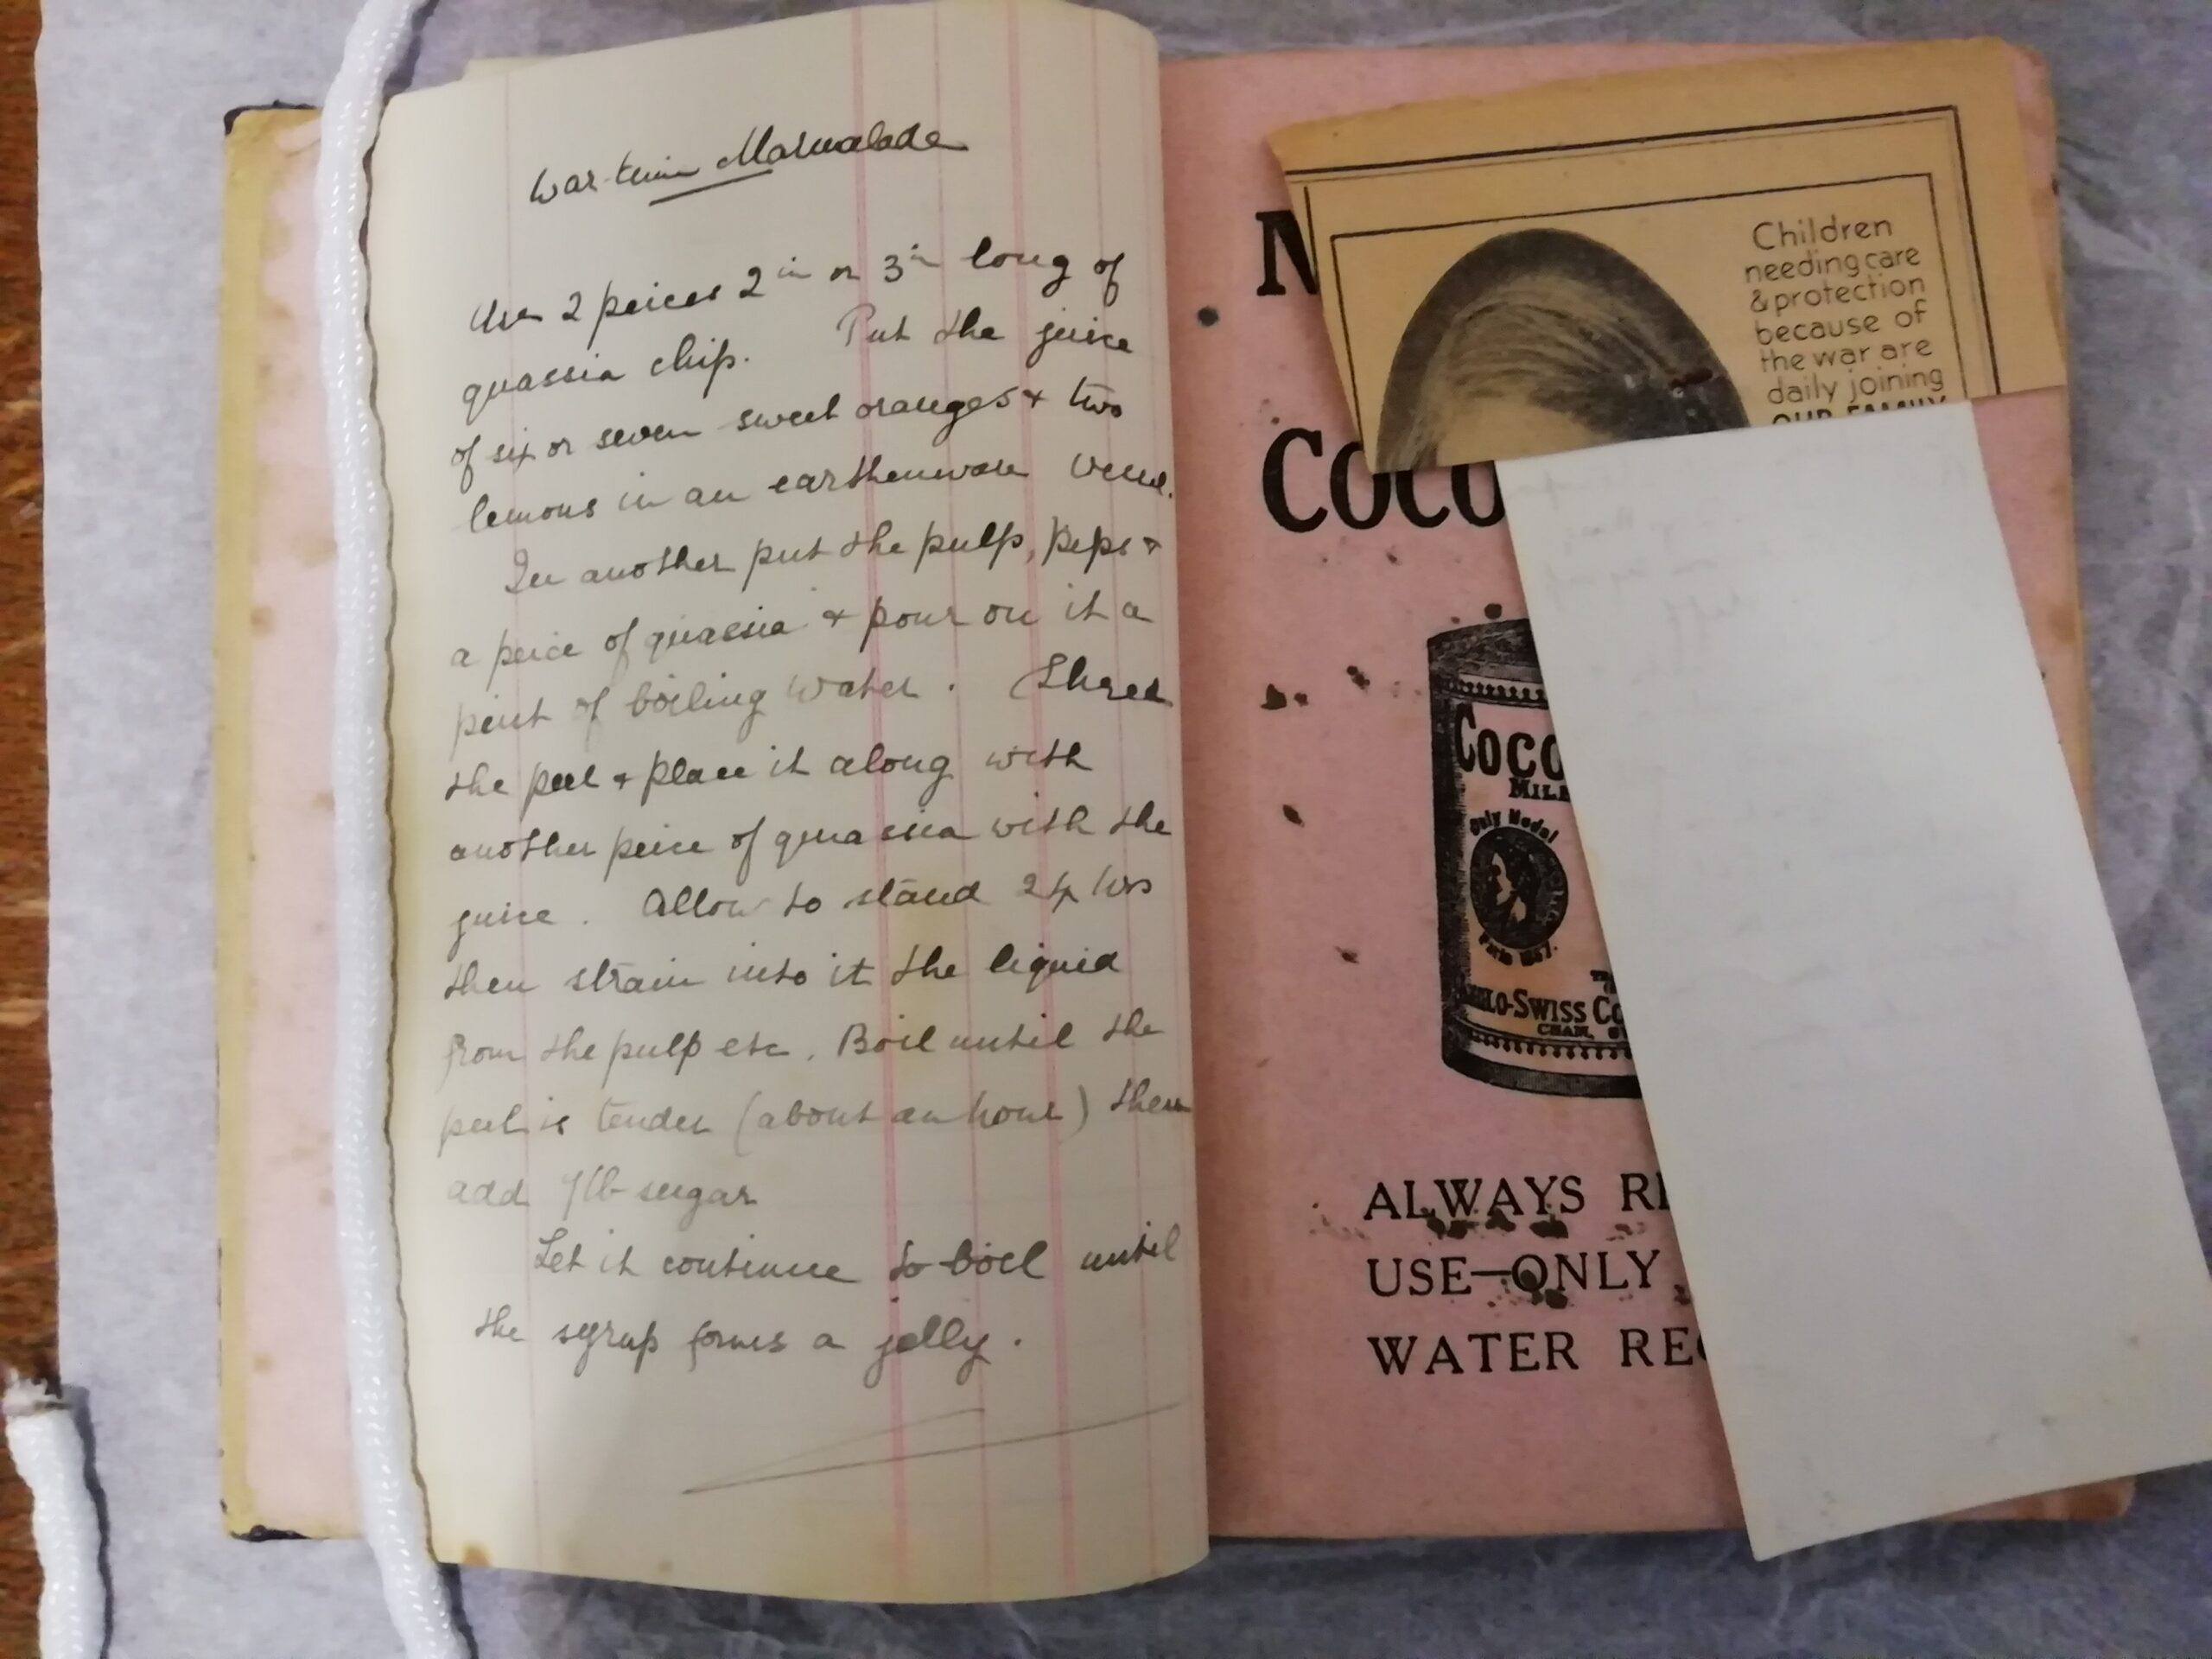 War-time Marmalade
Use 2 peices 2in or 3in long of
quassia chip. Put the juice
of six or seven sweet oranges & two
lemons in an earthenware vessel.
In another put the pulp, peps &
a peice of quassia & pour on it a
pint of boiling water. Shred
the peel & place it along with
another peice of quassia with the
juice. Allow to stand 24 hrs
then strain into it the liquid
from the pulp etc. Boil until the
peel is tender (about an hour) then
add lb sugar
Let it continue to boil until
the syrup forms a jelly.
N
COCO
Children
needing care
& protection
because of
the war are
daily joining
OUR FAMILY
COCO
MILK
Only Medal
Paris 1867.
ANGLO-SWISS CO
CHAM, S
ALWAYS RE
USE—ONLY
WATER REQ